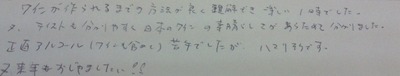 ワインが作られるまでの方法が良く理解でき楽しい1日でした。
又、テイストも分かりやすく日本のワインの素晴らしさがあらためて分かりました。
正直アルコール(ワインも含めて)苦手でしたが、ハマりそうです。
又来年もおじゃましたい!!